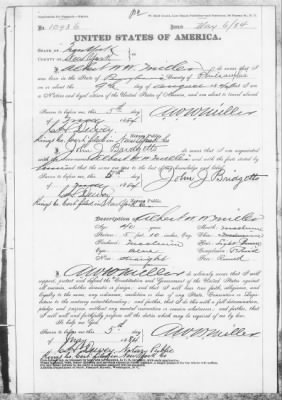 No 10936 May 6/84
UNITED STATES OF AMERICA.
STATE OF New York
COUNTY OF New York
I Albert W. W. Miller do swear that I
was born in the State of County of
on or about the 9th day of August that I
am a Native and loyal citizen of the United States of America, and am about to travel abroad
Sworn to before me, this 5th day
of May 1884 A W W Miller
Notary Public
Kings Co. Cert filed in New York Co
I John J Bardgette do swear that I am acquainted
with the above named Albert W. W. Miller and with the facts stated by
him and that the same are true to the best of my knowledge and belief.
Sworn to before me, this 5th day
of May 1884 John J Bardgette
Notary Public
Kings Co. Cert filed in New York Co
Description of Albert W. W. Miller
Age 40 years Mouth medium
Stature 5 ft 10 inches, Eng. Chin
Forehead medium Hair Light Brown
Eyes Blue Complexion
Nose straight Face Round
I A W W Miller do solemnly swear that I will
support, protect and defend the Constitution and Government of the United States against
all enemies, whether domestic or foreign; and that I will bear true faith, allegiance, and
loyalty to the same, any ordinance, resolution or law of any State, Convention or Legisla-
ture to the contrary notwithstanding; and further, that I do this with a full determination,
pledge and purpose, without any mental reservation or evasion whatsoever; and further, that
I will well and faithfully perform all the duties which may be required of me by law.
So help me God.
Sworn to before me, this 5th day A W W Miller
of May 1884
Notary Public
Kings Co. Cert filed in New York Co